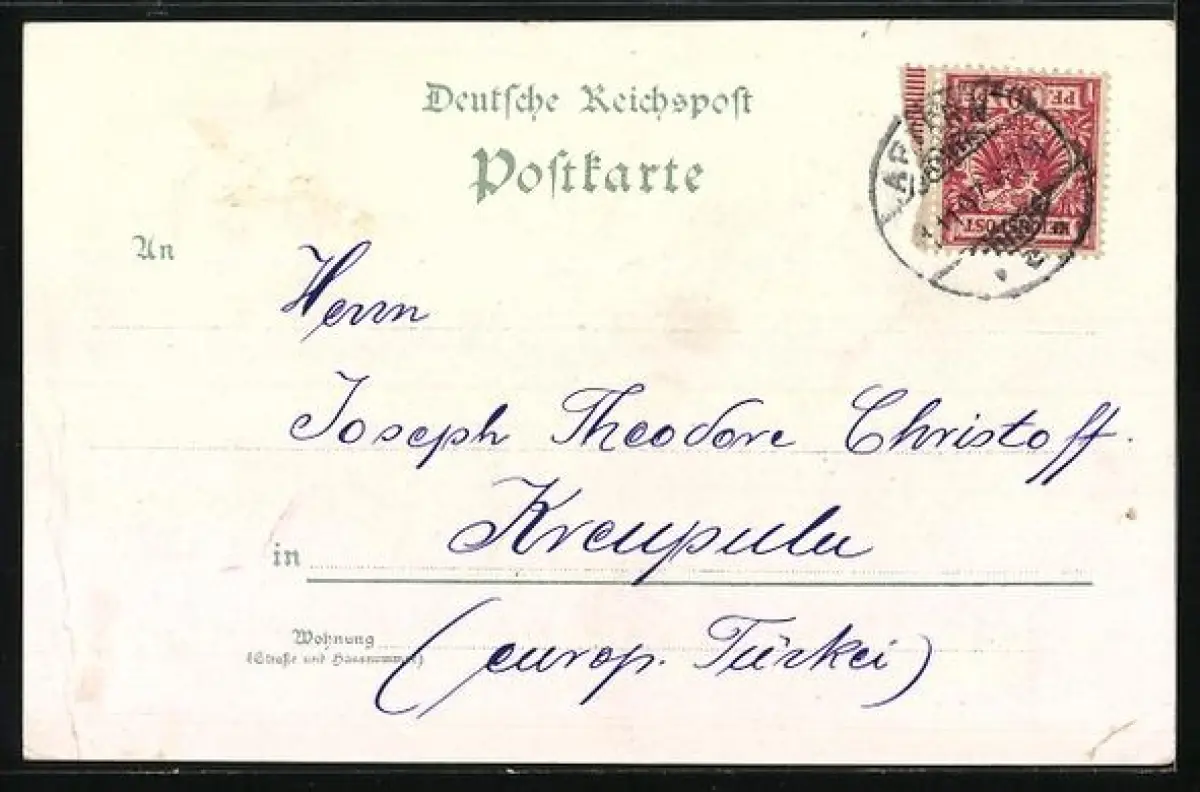 Deutsche Reichspost
Postkarte
An
Herrn
Joseph Theodore Christoff.
in Kreupulu
Wohnung
(Straße und Hausnummer)
(europ. Türkei)
10 PF
REICHSPOST